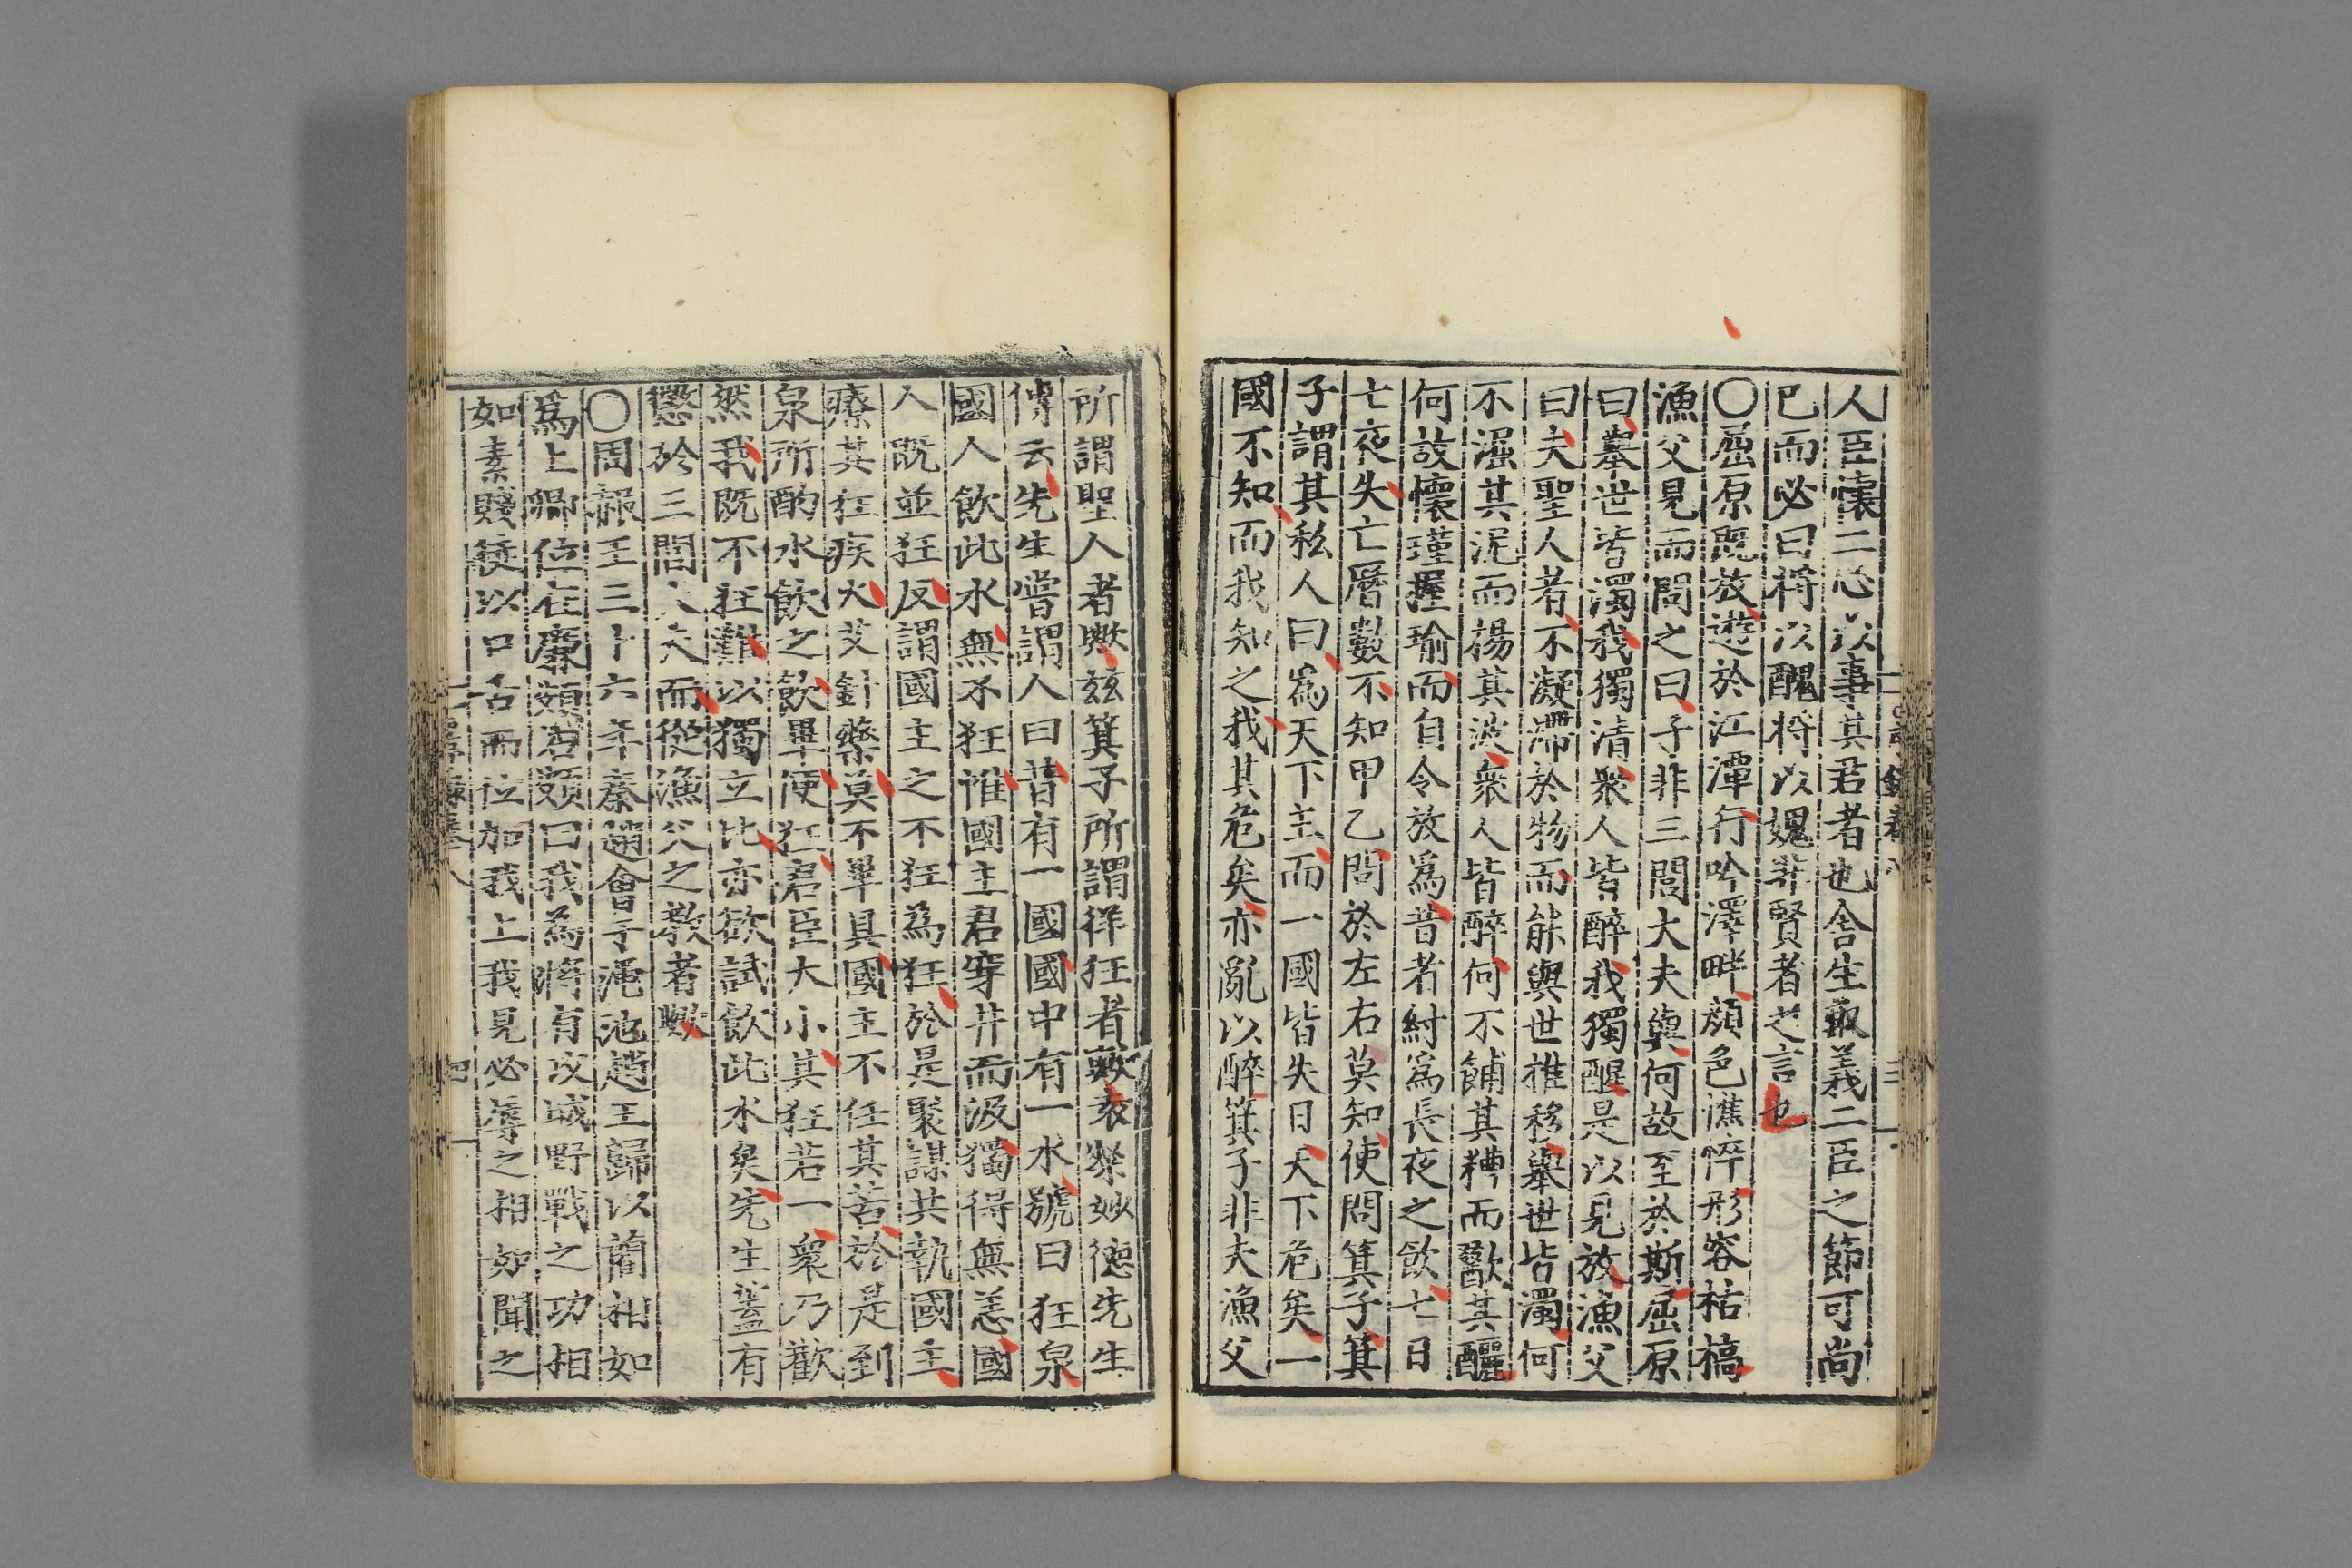 人臣懷二心以事其君者也舍生取義二臣之節可尚
已而必曰將以醜將以媿茾賢者之言也
〇屈原既放遊於江潭行吟澤畔顔色憔悴形容枯槁
漁父見而問之曰子非三閭大夫與何故至於斯屈原
曰擧世皆濁我獨清衆人皆醉我獨醒是以見放漁父
曰夫聖人者不凝滯於物而能與世推移擧世皆濁何
不淈其泥而揚其波衆人皆醉何不餔其糟而歠其釃
何故懷瑾握瑜而自令放爲昔者紂爲長夜之飲七日
七夜失亡曆數不知甲乙問於左右莫知使問箕子箕
子謂其私人曰爲天下主而一國皆失日天下危矣一
國不知而我知之我其危矣亦亂以醉箕子非夫漁父
所謂聖人者歟玆箕子所謂徉狂者歟袁粲妙德先生
傳云先生嘗謂人曰昔有一國國中有一水號曰狂泉
國人飲此水無不狂惟國主君穿井而汲獨得無恙國
人既並狂反謂國主之不狂爲狂於是聚謀共執國主
療其狂疾火艾針藥莫不畢具國主不任其苦於是到
泉所酌水飲之飲畢便狂君臣大小其狂若一衆乃歡
然我既不狂難以獨立比亦欲試飲此水矣先生蓋有
懲於三閭大夫而從漁父之教者歟
〇周赧王三十六年秦趙會于澠池趙王歸以藺相如
爲上卿位在廉頗右頗曰我爲將有攻城野戰之功相
如素賤徒以口舌而位加我上我見必辱之相如聞之